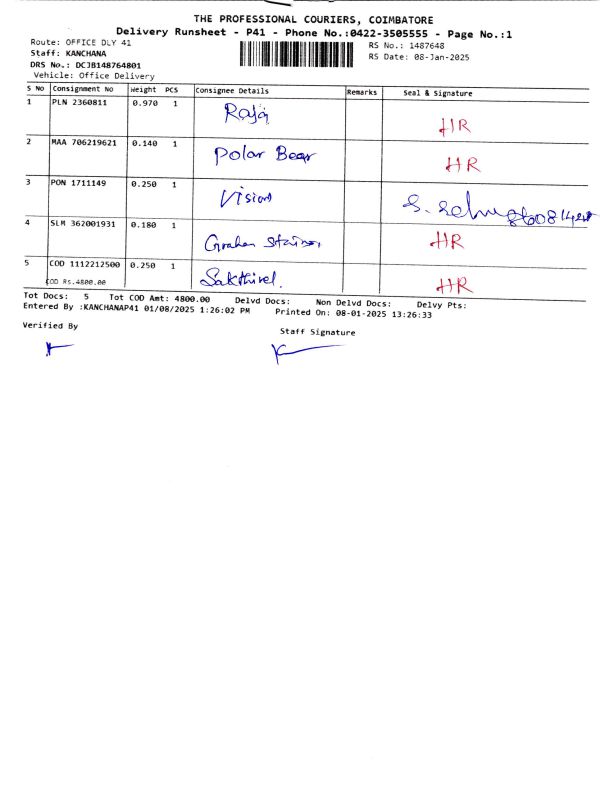 THE PROFESSIONAL COURIERS, COIMBATORE
Delivery Runsheet - P41 - Phone No.:0422-3505555 - Page No.:1
Route: OFFICE DLY 41
RS No.: 1487648
Staff: KANCHANA
RS Date: 08-Jan-2025
DRS No.: DCJB148764801
Vehicle: Office Delivery
S No Consignment No Weight PCS Consignee Details Remarks Seal & Signature
1 PLN 2360811 0.970 1 Raja HR
2 MAA 706219621 0.140 1 Polar Bear HR
3 PON 1711149 0.250 1 Vision S.
4 SLM 362001931 0.180 1 HR
5 COD 1112212500 0.250 1 Sakthivel. HR
COD Rs.4800.00
Tot Docs: 5 Tot COD Amt: 4800.00 Delvd Docs: Non Delvd Docs: Delvy Pts:
Entered By :KANCHANAP41 01/08/2025 1:26:02 PM Printed On: 08-01-2025 13:26:33
Verified By
Staff Signature